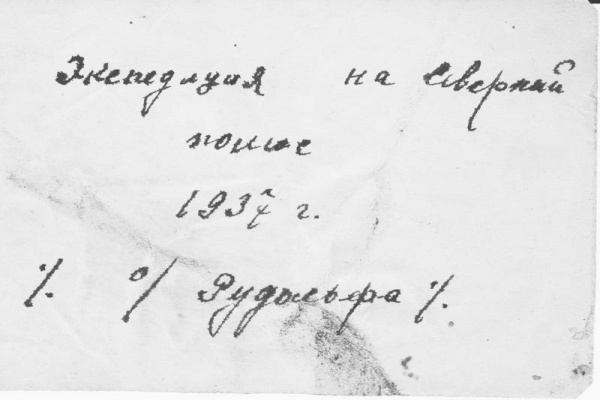 Экспедиция на Северный
полюс
1937 г.
/. о/ Рудольфа /.